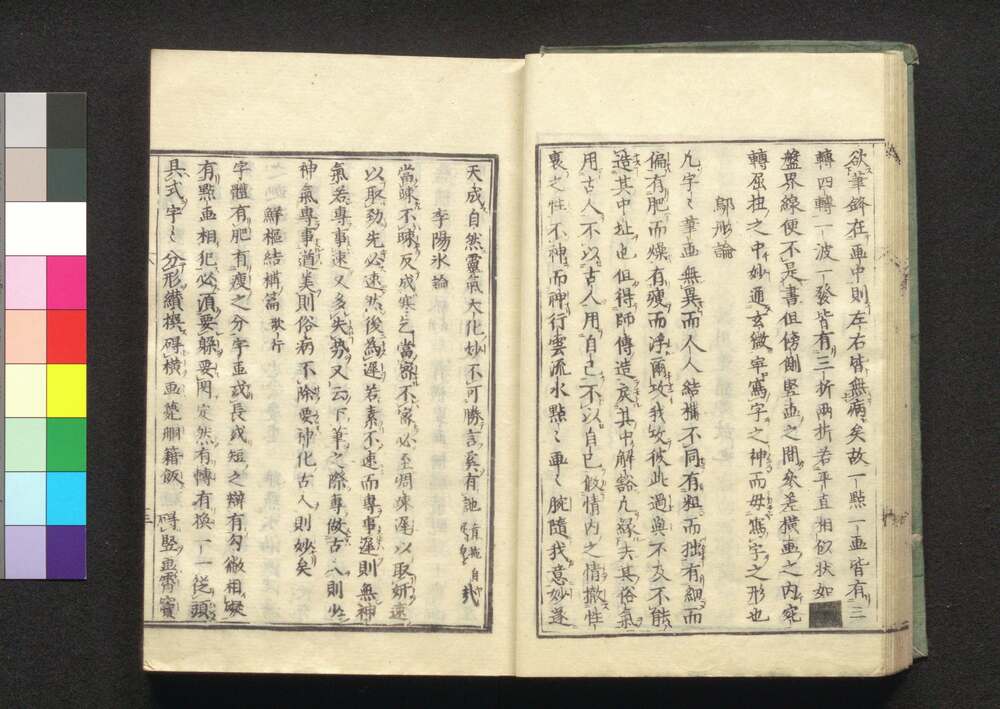 欲筆鋒在畫中則左右皆無病矣故一點一畫皆有三
轉四轉一波一發皆有三折兩折若平直相似狀如
盤界線便不是書但傍側竪畫之間參差橫畫之内宛
轉屈扭之中妙通玄微宰寫字之神而毋寫字之形也
鄔彤論
凢字〻筆畫無異而人人結構不同有粗而拙有細而
偏有肥而燥有瘦而浮爾故我故彼此過與不及不能
造其中扯也但得師傳造成其中解豁凢縁夫其俗氣
用古人不以古人用自己不以自己做情内之情撒性
裏之性不神而神行雲流水點〻畫〻腕隨我意妙遂
天成自然靈氣大化妙不可勝言矣有
李陽氷論
當疎不疎反成寒乞當密不密必至凋疎遲以取妍速
以取勁先必速然後為遲若素不速而專事遲則無神
氣若專事速又多失勢又云下筆之際專倣古人則少
神氣專事遒美則俗病不除要神化古人則妙矣
鮮樞結構篇
字體有肥有瘦之分字畫或長或短之辯有勾徹相凝
有點畫相犯必須要躲要閃定然有轉有換一一從頭
具式字〻分形續撰碍橫畫